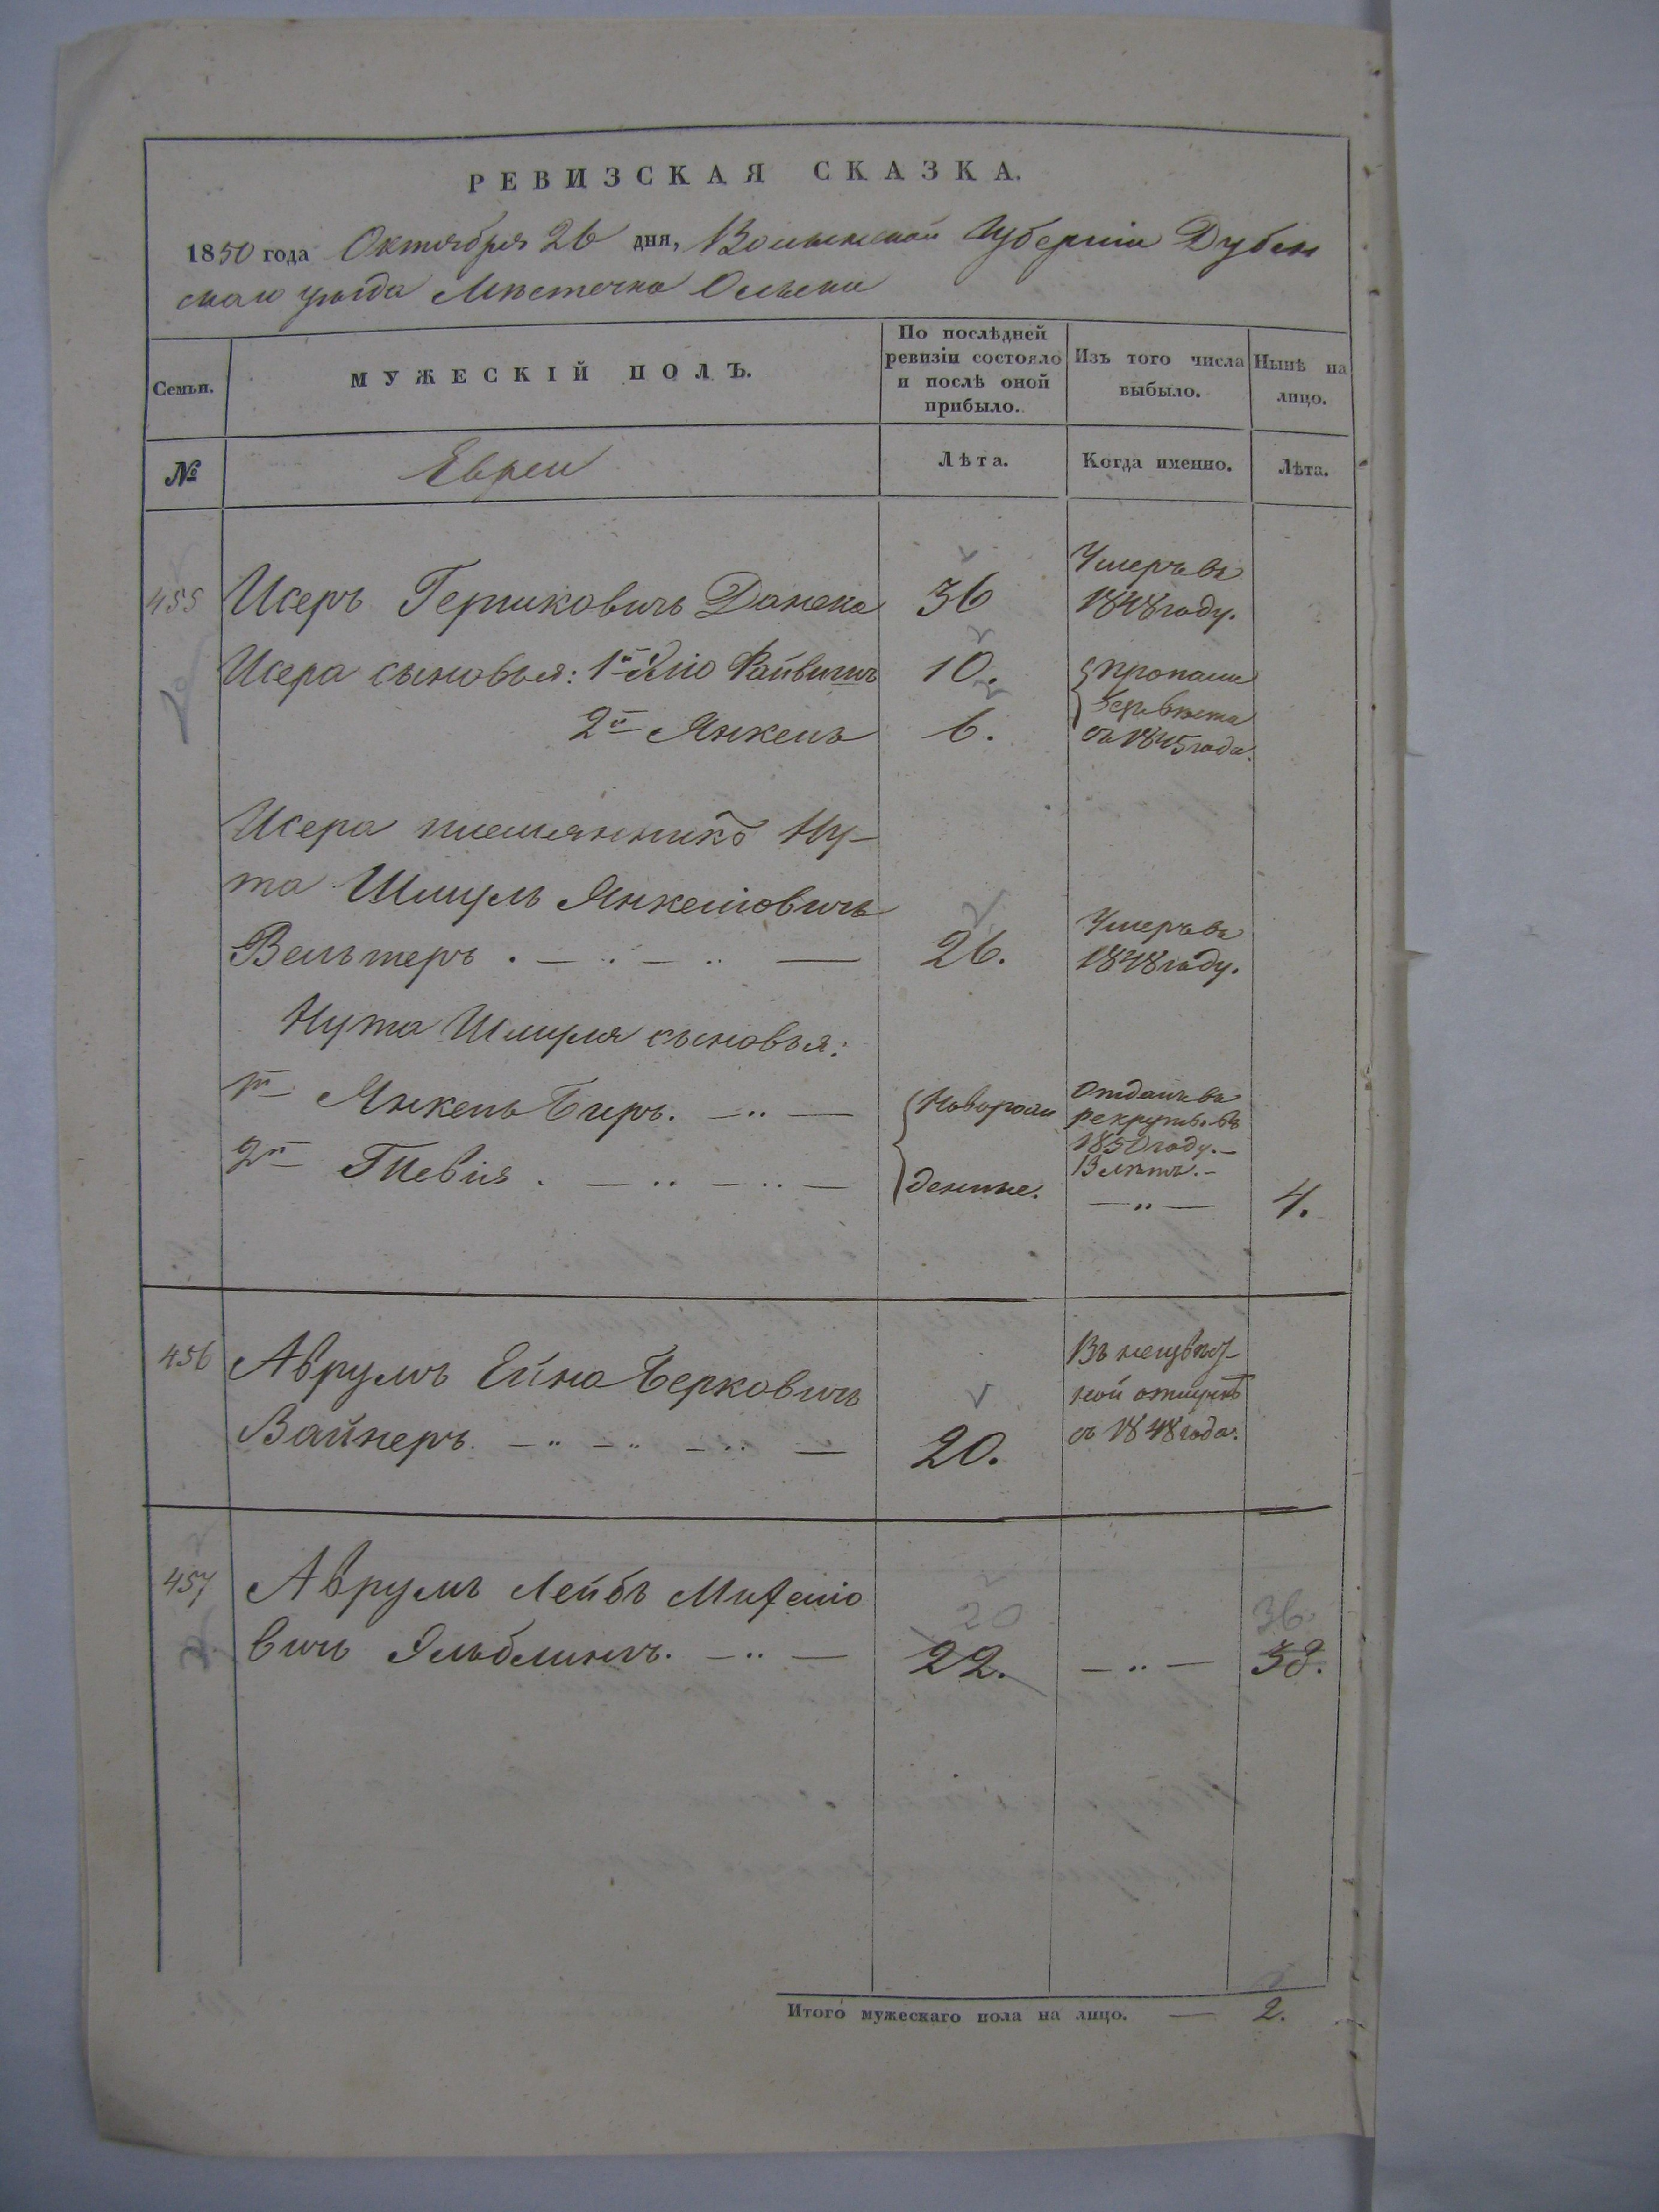 РЕВИЗСКАЯ СКАЗКА.
1850 года Октября 26 дня, Волынской Губернiи Дубен
скаго уѣзда Мѣстечка Олыки
Семьи.
МУЖЕСКІЙ ПОЛЪ.
По послѣдней ревизіи состояло и послѣ оной прибыло.
Изъ того числа выбыло.
Нынѣ на лицо.
№
Евреи
Лѣта.
Когда именно.
Лѣта.
455 Исеръ Гершковичъ 36 Умеръ въ 1848 году.
Исера сыновья: 1й Файвишъ 10. пропали безъ вѣста
2й Янкель 6. съ 1845 года.
Исера племянникъ Ну-
та Шмуль Янкелiовичъ
Вельтеръ . — .. — .. — 26. Умеръ въ 1848 году.
Нута Шмуля сыновья:
1й Янкель Беръ. — .. — Новорож отданъ въ рекруты въ 1850 году. —
2й Тевiя . — .. — .. — денные. — .. — 4.
456 Аврумъ Ейна Берковичъ Въ неизвѣст-
Вайнеръ — .. — .. — .. — 20. ной отлучкѣ съ 1848 года.
457 Аврумъ Лейбъ Михелiо 20 36
вичъ — .. — 22. — .. — 38.
Итого мужескаго пола на лицо. — 2.